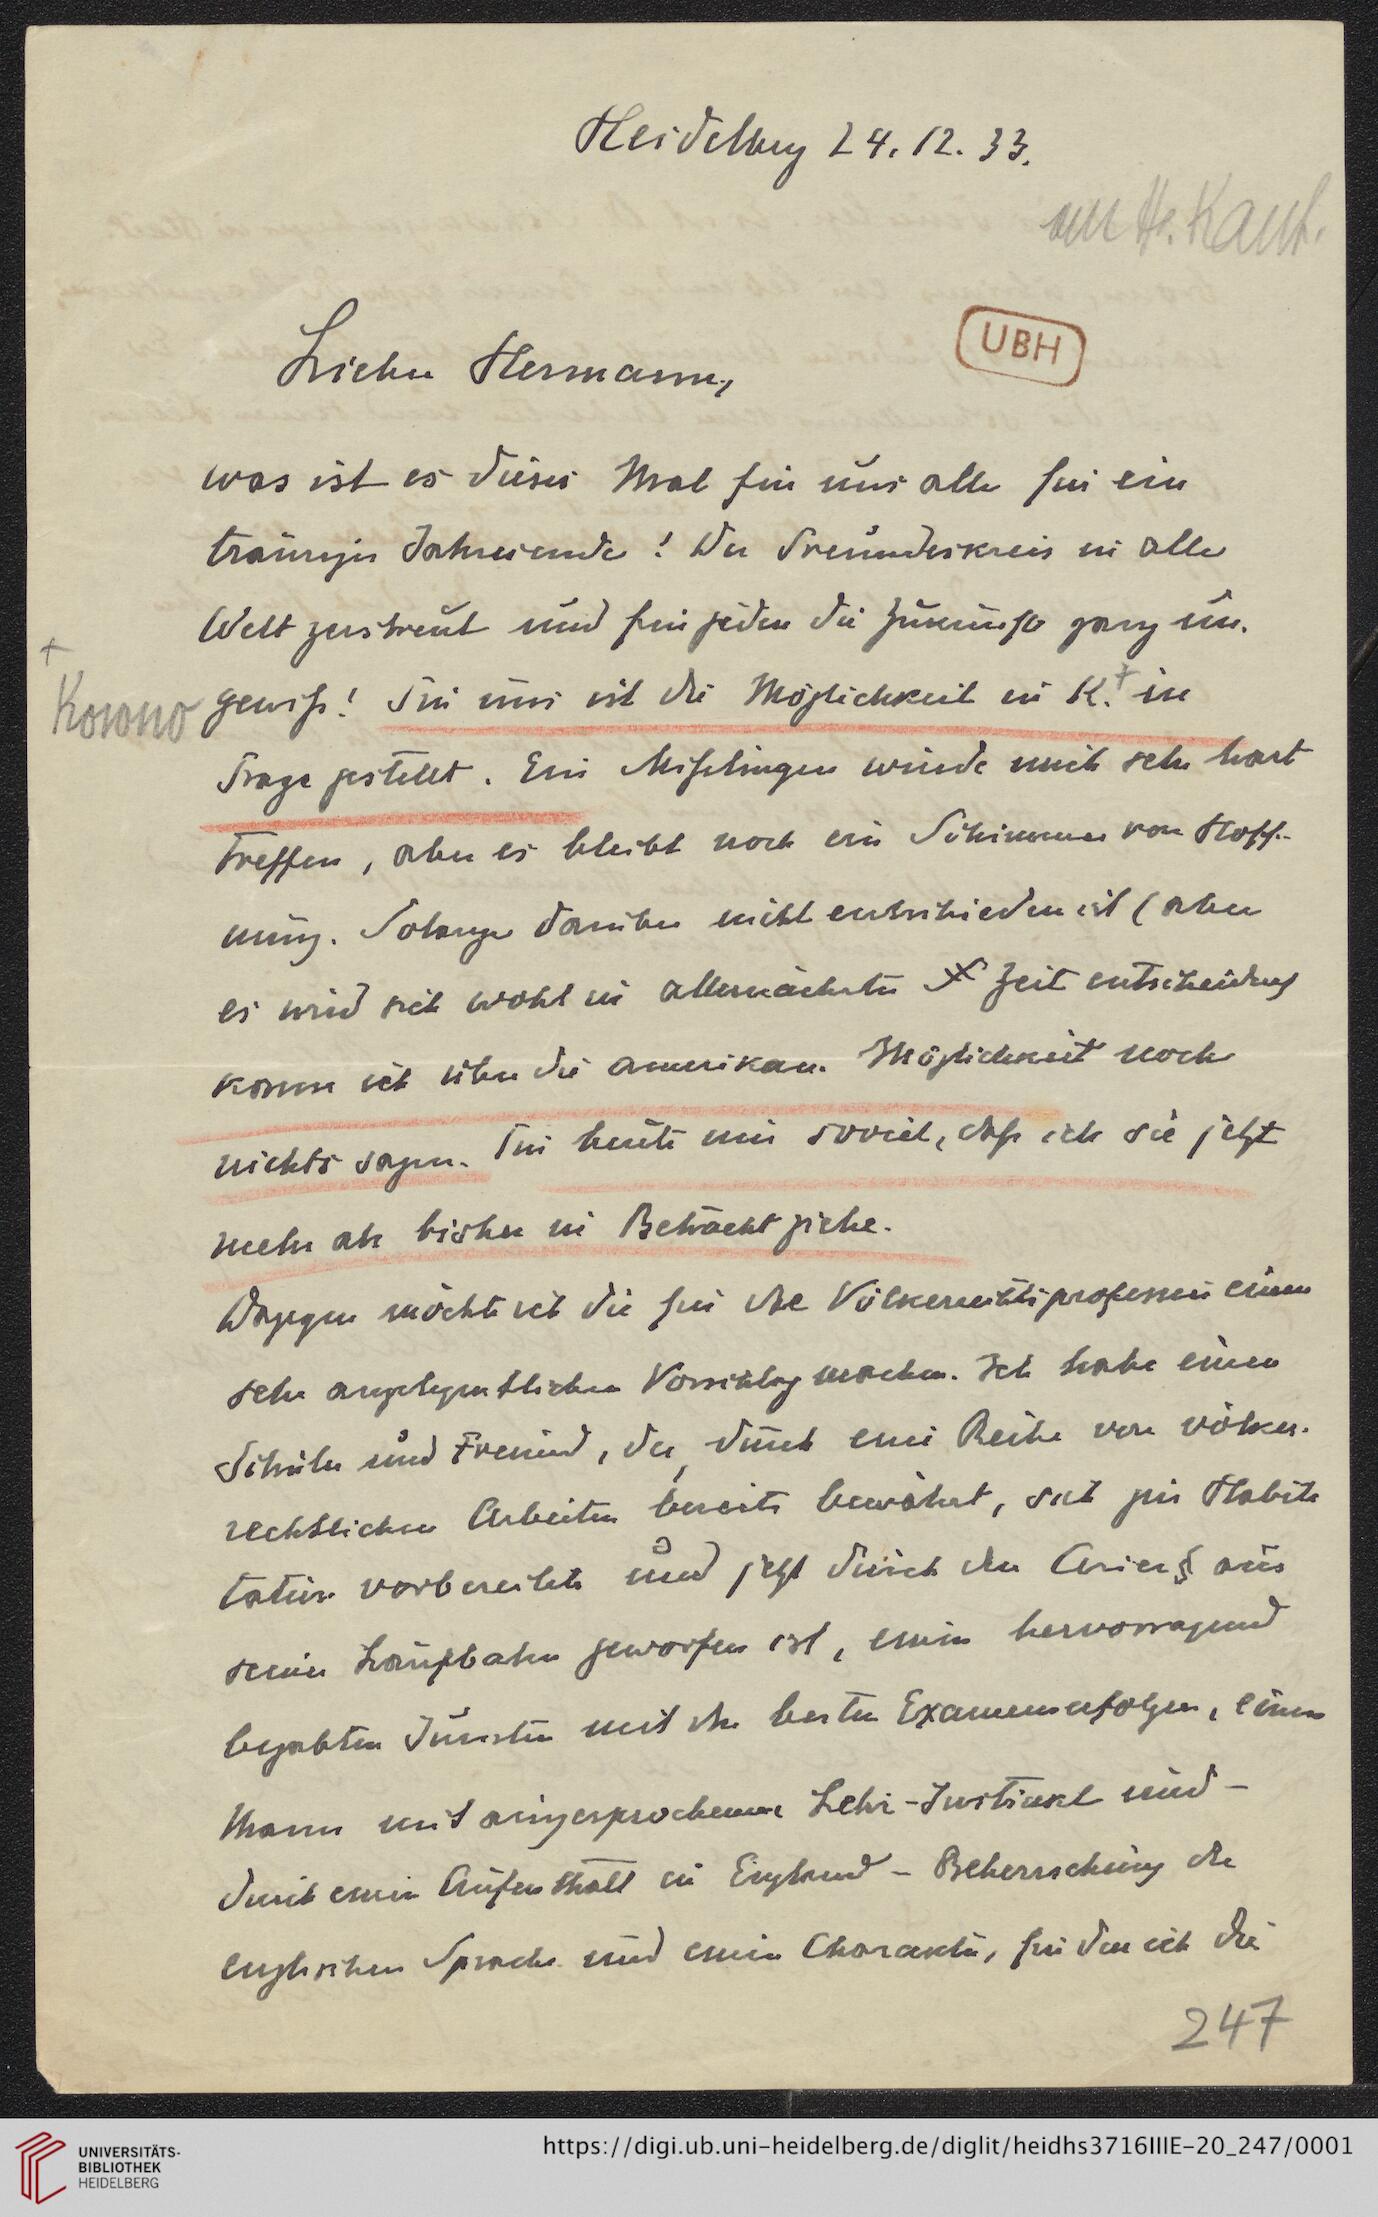 Heidelberg 24.12.33.
an H. Kant.
UBH
Lieber Hermann,
was ist es dieses Mal für uns alle für ein
trauriges Jahresende! Der Freundeskreis in alle
Welt zerstreut und für jeden die Zukunft ganz un-
+
Kowno
gewiß! Für uns ist die Möglichkeit in K.+ in
Frage gestellt. Ein Mißlingen würde mich sehr hart
treffen, aber es bleibt noch ein Schimmer von Hoff-
nung. Solange darüber nicht entschieden ist (aber
es wird sich wohl in allernächster Zeit entscheiden)
kann ich über die amerikan. Möglichkeit noch
nichts sagen. Für heute nur soviel, daß ich sie jetzt
mehr als bisher in Betracht ziehe.
Dagegen möchte ich Dir für die Völkerrechtsprofessur einen
sehr angelegentlichen Vorschlag machen. Ich habe einen
Schüler und Freund, der, durch eine Reihe von völker-
rechtlichen Arbeiten bereits bewährt, sich zur Habili
tation vorbereitete und jetzt durch den Arier§ aus
seiner Laufbahn geworfen ist, einen hervorragend
begabten Juristen mit den besten Examenserfolgen, einen
Mann mit ausgesprochenem Lehr-Instinkt und –
durch einen Aufenthalt in England – Beherrschung der
englischen Sprache und einen Charakter, für den ich die
247
UNIVERSITÄTS-
BIBLIOTHEK
HEIDELBERG
https://digi.ub.uni-heidelberg.de/diglit/heidhs3716IIIE-20_247/0001